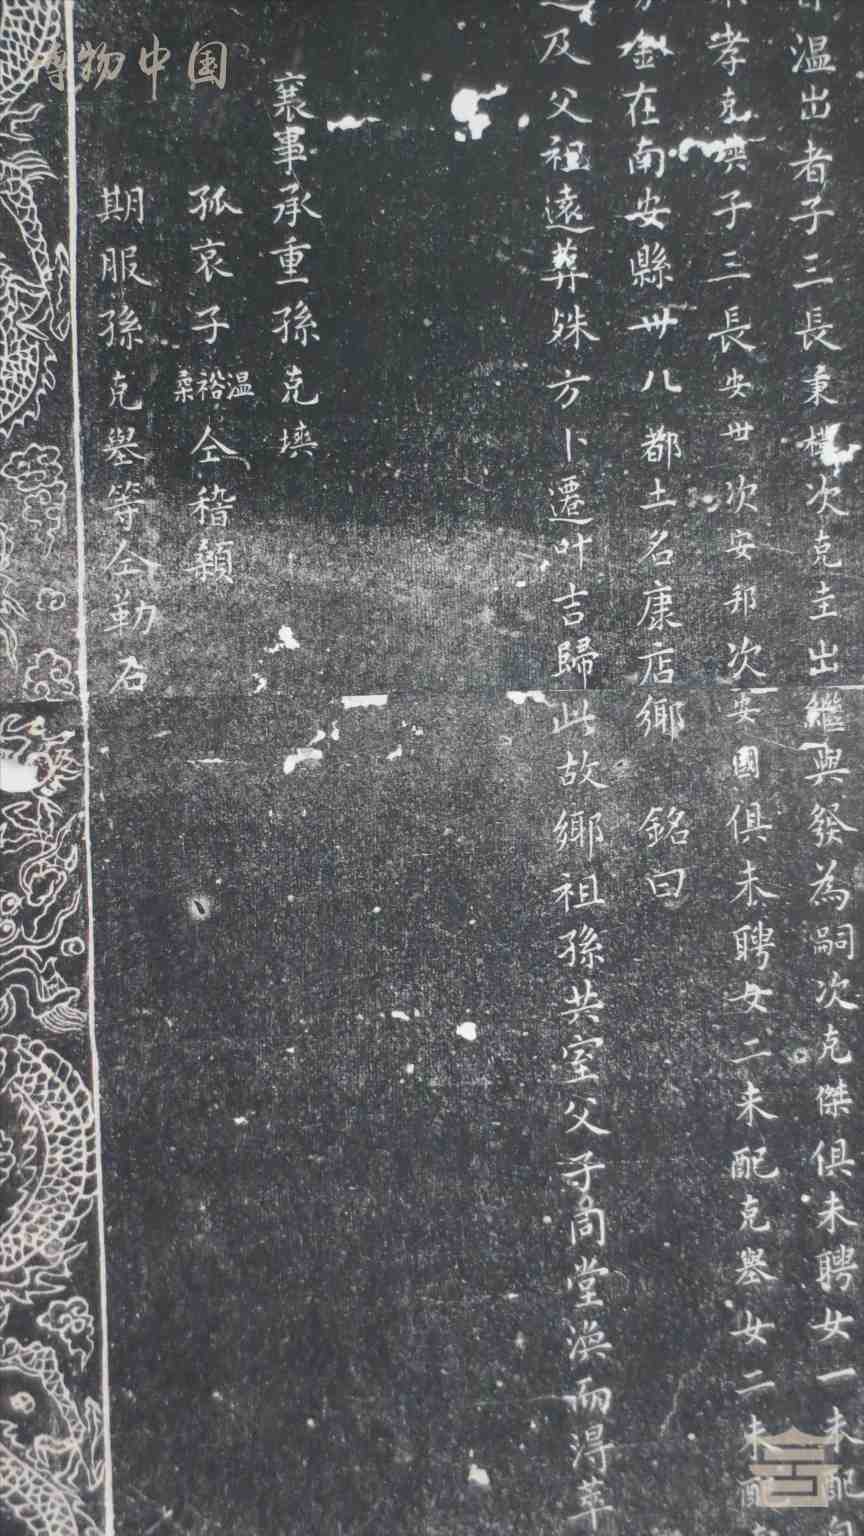 温出者子三長秉樸次克圭出繼與發為嗣次克傑俱未聘女一未配
孝克㙺子三長安世次安邦次安國俱未聘女二未配克舉女二未配
在南安縣卅八都土名康店鄉 銘曰
及父祖遠葬殊方卜遷叶吉歸此故鄉祖孫共室父子同堂渙而得萃
襄事承重孫克㙺
孤哀子温裕棻仝稽顙
期服孫克舉等仝勒石
博物中国